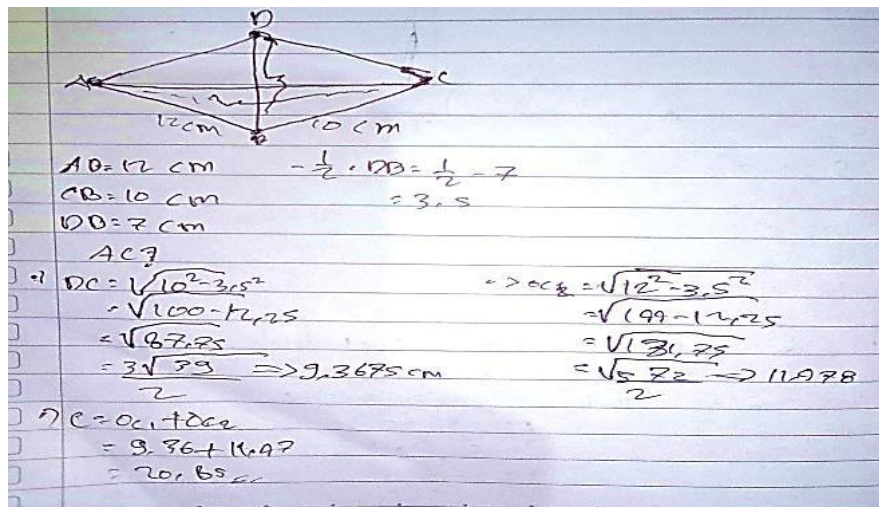 D
A
C
12cm
10 cm
B
AB = 12 cm
CB = 10 cm
DB = 7 cm
AC?
- 1/2 . DB = 1/2 - 7
= 3,5
=> OC = √10² - 3,5²
= √100 - 12,25
= √87,75
= 3√39 / 2 => 9,3675 cm
-> OC2 = √12² - 3,5²
= √144 - 12,25
= √131,75
= √572 / 2 => 11,478
C = OC1 + OC2
= 9.36 + 11,47
= 20,85